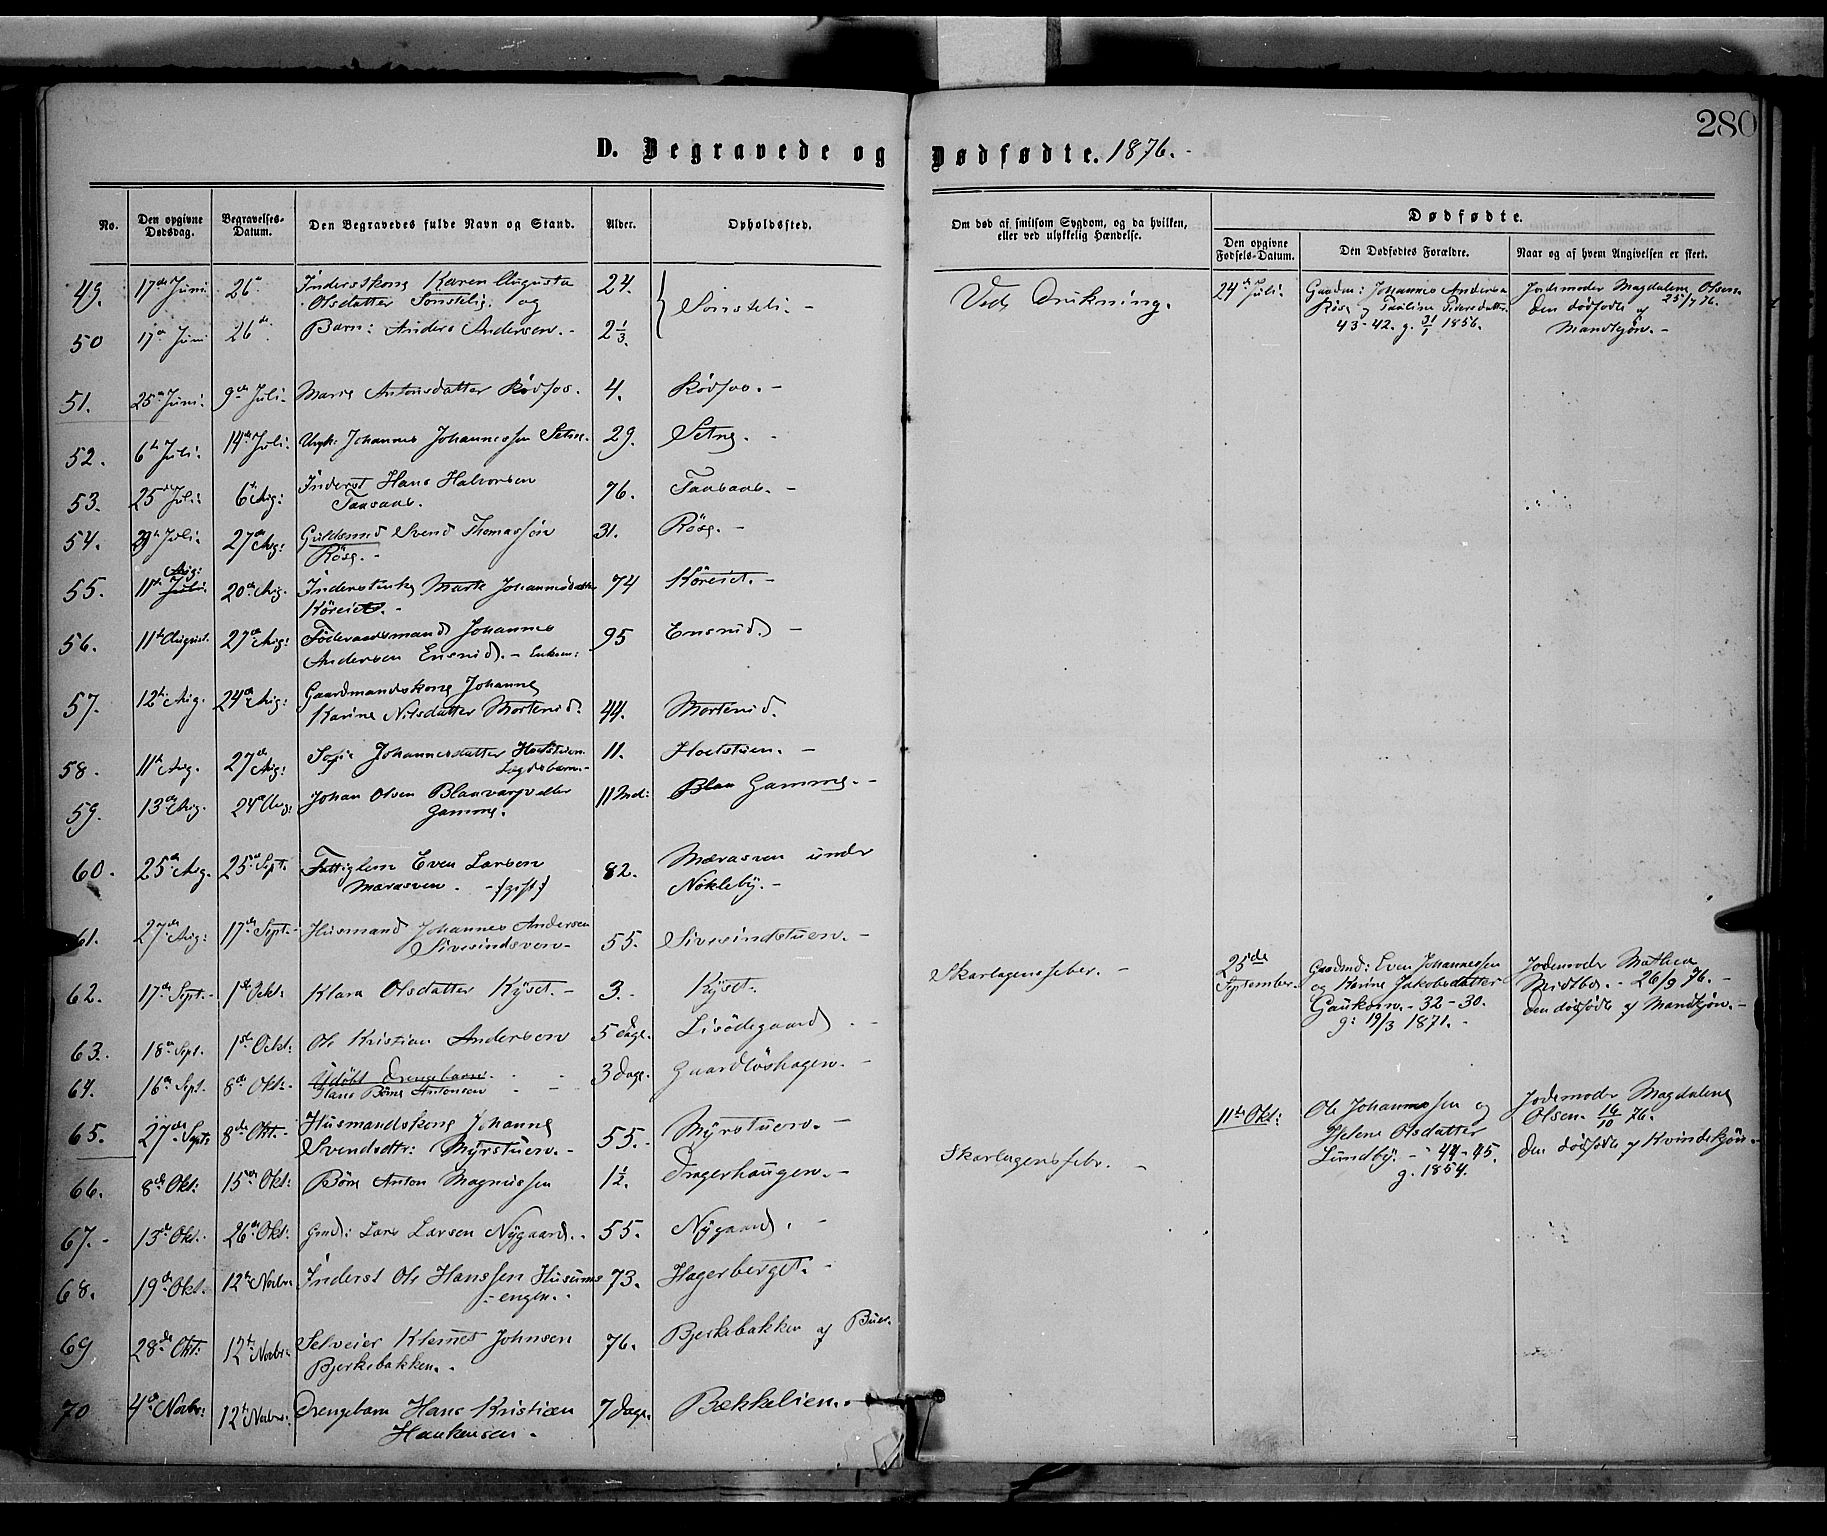 280
D. Begravede og Dødfødte. 1876.-
No.
Den opgivne Dødsdag.
Begravelses-Datum.
Den Begravedes fulde Navn og Stand.
Alder.
Opholdssted.
Om død af smitsom Sygdom, og da hvilken, eller ved ulykkelig Hændelse.
Dødfødte.
Den opgivne Fødsels-Datum.
Den Dødfødtes Forældre.
Naar og af hvem Angivelsen er skeet.
49. 17de Juni 26de Inderstkone Karen Augusta 24.
Olsdatter Sønsteli og Sønsteli.- Ved Drukning.
50 17de Juni 26de Barn: Anders Andersen.- 2 1/3.
24de Juli. Gaardm: Johannes Andersen
Røse og Pauline Pedersdatter
43-42. g. 31/1 1856.
Jodemoder Magdalene Olsen 25/7 76.
Den dødfødte af
Mandkjøn.-
51. 25de Juni. 9de Juli. Marie Antonsdatter Rødfos. 4. Rødfos.-
52. 6te Juli. 14de Juli. Ungk: Johannes Johannessen Setne. 29. Setne.
53. 25de Juli 6te Aug: Inderst Hans Halvorsen 76. Taasaas.-
Taasaas.
54. Juli. 27de Aug: Guldsmed Svend Thomassøn 31. Røse.-
Røse.-
55. 11te Juli. Aug: 20de Aug. Marte Johannesdatter 74 Køreiet.-
Køreiet.-
56. 11te August. 27de Aug: Føderaadsmand Johannes 95 Ensrud.-
Andersen Ensrud.- Enkem:
57. 12te Aug. 24de Aug: Gaardmandskone Johanne
Karine Nilsdatter Mortenrud. 44. Mortenrud.
58. 11te Aug. 27de Aug: Sofie Johannesdatter Hoelstuen 11. Hoelstuen.-
Lægdsbarn.-
59. 13de Aug. 24de Aug: Johan Olsen Blaavarp eller 11 Md: Blaa Gamme.-
Gamme.
60. 25de Aug. 25de Sept. Fattiglem Even Larsen 82. Mærasven under
Marasven. -{gift} Nøkleby.-
61. 27de Aug: 17de Sept.- Husmand Johannes Andersen
Sivesindsven- 55. Sivesindstuen.-
62. 17de Sept.- 1ste Oekt: Klara Olsdatter Kyset.- 3.- Kyset. Skarlagensfeber.-
25de September. Gaardmd: Even Johannessen
og Karine Jakobsdatter
Gaukom.- 32-30.
g: 19/3 1871.-
Jodemoder Mathea
Midtbø.- 26/9 76.-
Den dødfødte af Mandkjøn.-
63. 18de Sept. 1ste Oekt: Ole Kristian Andersen 5 dage. Lisødegaard.-
64. 16de Sept. 8de Okt.- Udøbt Drengebarn. 3 Dage.
Hans Bøne Antonsen
65. 27de Sept: 8de Okt.- Husmandskone Johanne 55.- Myrstuen.-
Svendsdtr: Myrstuen.-
11te Okt: Ole Johannessen og
Helene Olsdatter
Lundby.- 44-45.
g. 1854.
Jodemoder Magdalene
Olsen. 16/10 76.
Den dødfødte af Kvindekjøn.-
66. 8de Okt: 15de Okt: Bøne Anton Magnussen 1½. Dragerhaugen.- Skarlagensfebr.-
67.- 13de Okt. 26de Okt: Gmd: Lars Larsen Nygaard. 55. Nygaard.-
68. 19de Okt. 12te Novbr: Inderst Ole Hanssen Husums 73. Hagerberget.-
-engen.
69 28de Okt: 12te Novbr: Selveier Klemet Johnsen 76. Bjerkebakken af Buer.
Bjerkebakken.
70 4de Novbr: 12te Novbr: Drengebarn Hans Kristian 7 Dage. Bækkelien.
Haakensen.